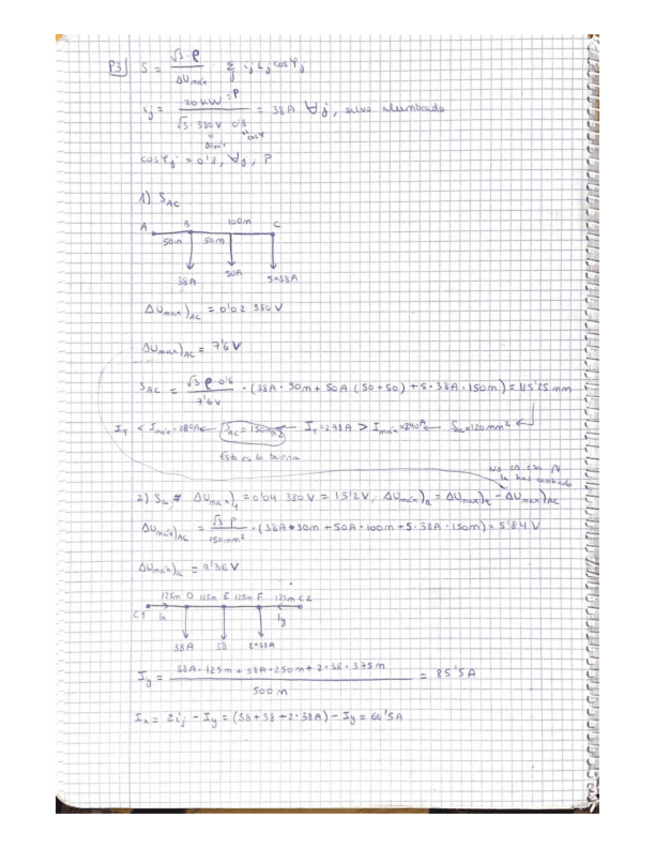 P3) S = √3·ρ / ΔUmáx · Σj ij Lj cosφj
ij = 20 kW = P / √3 · 380V 0'8 = 38A ∀j, salvo alumbrado
cosφj = 0'8, ∀j, P
1) SAC
A B 100m C
50m 50m
38A 50A 5·38A
ΔUmax)AC = 0'02 380V
ΔUmax)AC = 7'6V
SAC = √3 ρ 0'8 / 7'6V · (38A · 50m + 50A (50+50) + 5·38A · 150m) = 115'25 mm
IT < Imáx = 280A ← SAC = 150mm² ← IT = 278A > Imáx = 240A ← SAC = 120mm² ←
Esta es la buena
No es esa
la has cambiado
2) ΔUmax)t = 0'04 380V = 15'2V, ΔUmáx)a = ΔUmax)t - ΔUmax)AC
ΔUmáx)AC = √3 ρ / 150mm² · (38A · 50m + 50A · 100m + 5·38A · 150m) = 5'84V
ΔUmáx)a = 9'36V
125m D 125m E 125m F 125m C2
C1 Ix Iy
38A 38 2·38A
Iy = 38A · 125m + 38A · 250m + 2·38 · 375m / 500m = 85'5A
Ix = Σij - Iy = (38+38+2·38A) - Iy = 66'5A